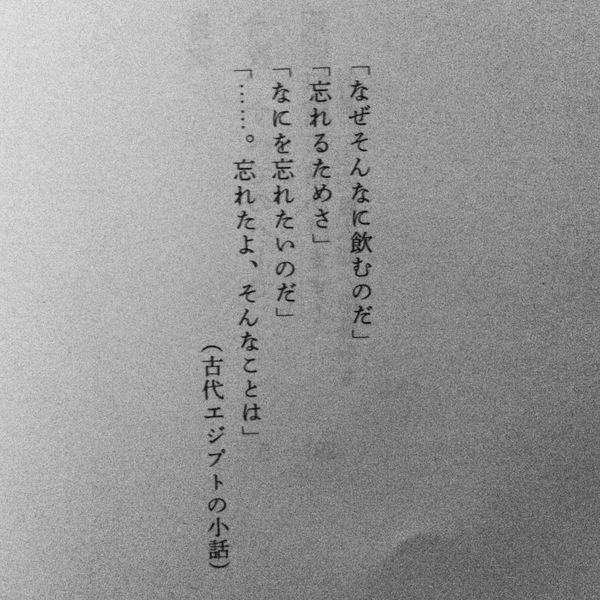 「なぜそんなに飲むのだ」
「忘れるためさ」
「なにを忘れたいのだ」
「……。忘れたよ、そんなことは」
（古代エジプトの小話）